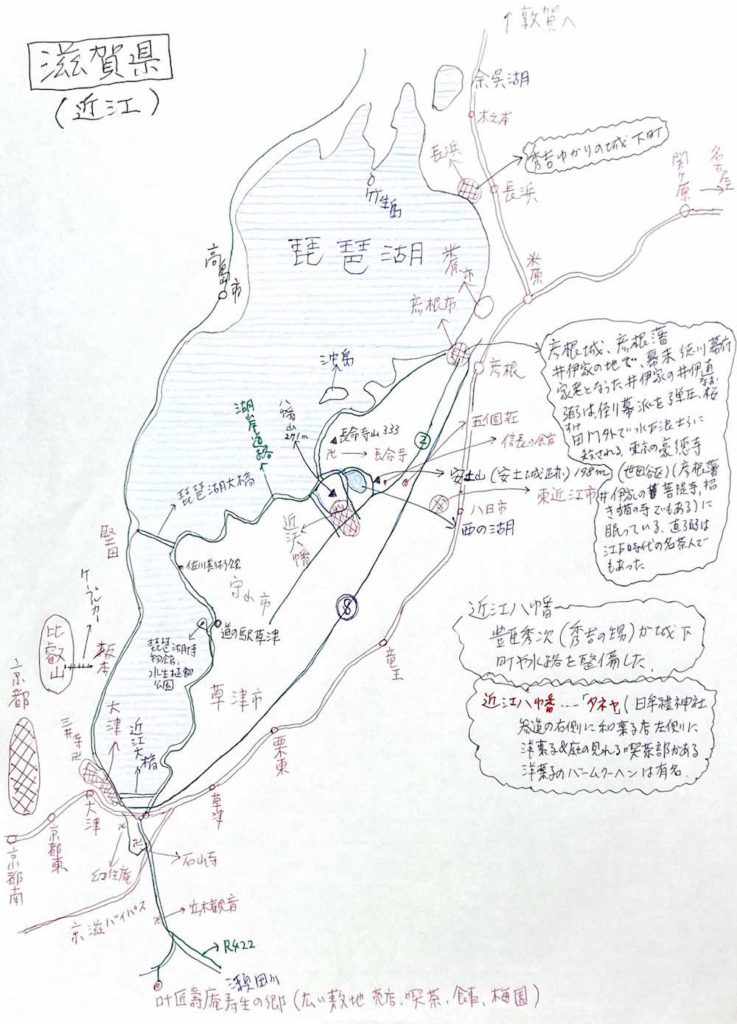 滋賀県
(近江)
↑敦賀へ
余呉湖
木之本
長浜
秀吉ゆかりの城下町
長浜
関ヶ原
名古屋
竹生島
琵琶湖
米原市
米原
高島市
彦根市
彦根
沖島
八幡山
271m
湖岸道路
長命寺山333
卍→長命寺
五個荘
信長の館
安土山(安土城跡)198m
東近江市
八日市
西の湖
近江八幡
琵琶湖大橋
堅田
佐川美術館
守山市
道の駅草津
琵琶湖博
物館,
水生植物
公園
草津市
ケーブルカー
比叡山
坂本
京都
三井寺
卍
大津
近江大橋
竜王
栗東
草津
大津
京都東
京都南
幻住庵
石山寺
京滋バイパス
立木観音
R422
瀬田川
叶匠壽庵寿生の郷(広い敷地 売店、喫茶、食事、梅園)
彦根城、彦根藩
井伊家の地で、幕末 徳川幕府
家老となった井伊家の井伊直
弼は佐幕派を弾圧、桜
田門外で水戸浪士らに
殺される。東京の豪徳寺
(世田谷区)(彦根藩
井伊家の菩提寺,招
き猫の寺でもある)に
眠っている。直弼は
江戸時代の名茶人で
もあった
近江八幡
豊臣秀次(秀吉の甥)が城下
町や水路を整備した。
近江八幡‥‥「タネヤ」(日牟禮神社
参道の右側に和菓子店左側に
洋菓子&庭の見れる喫茶部がある
洋菓子のバームクーヘンは有名.